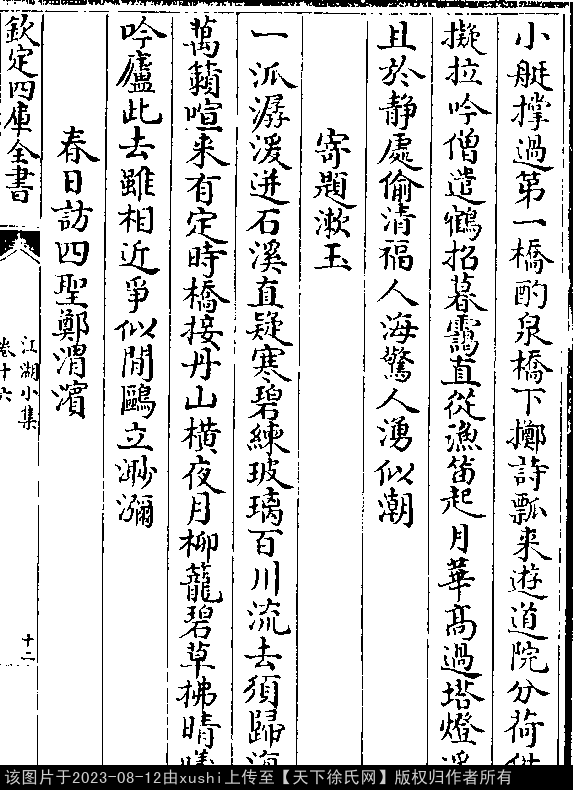 小艇撐過第一橋酌泉橋下擲詩瓢来遊道院分荷
擬拉吟僧遣鶴招暮靄直從漁笛起月華髙過塔燈
且於静處偷清福人海驚人湧似潮
寄題漱玉
一派潺湲迸石溪直疑寒碧練玻璃百川流去須歸海
萬籟喧来有定時橋接丹山横夜月柳籠碧草拂晴
吟廬此去雖相近爭似閒鷗立渺瀰
春日訪四聖鄭渭濱
欽定四庫全書
江湖小集
卷十六
十二
该图片于2023-08-12由xushi上传至【天下徐氏网】版权归作者所有